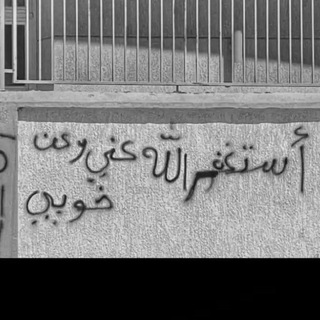 أستغفر الله عني وعن
خويي